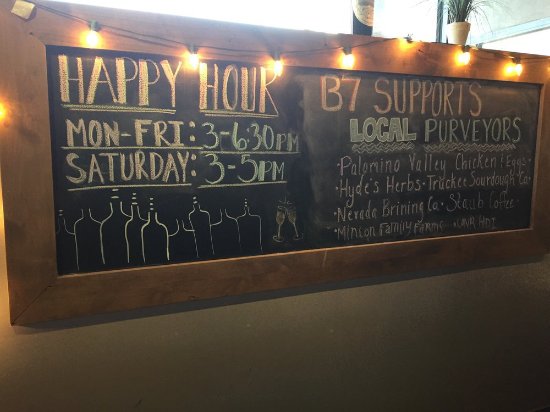 HAPPY HOUR
MON-FRI: 3-6:30PM
SATURDAY: 3-5PM
B7 SUPPORTS
LOCAL PURVEYORS
·Palomino Valley Chicken & Eggs
·Hyde's Herbs ·Truckee Sourdough Co.
·Nevada Brining Co. ·Staub Coffee
·Minton Family Farms